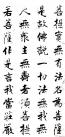 菩提實無有法名為菩薩
是故佛說一切法無我無
人無眾生無壽者須菩提
若菩薩作是言我當莊嚴